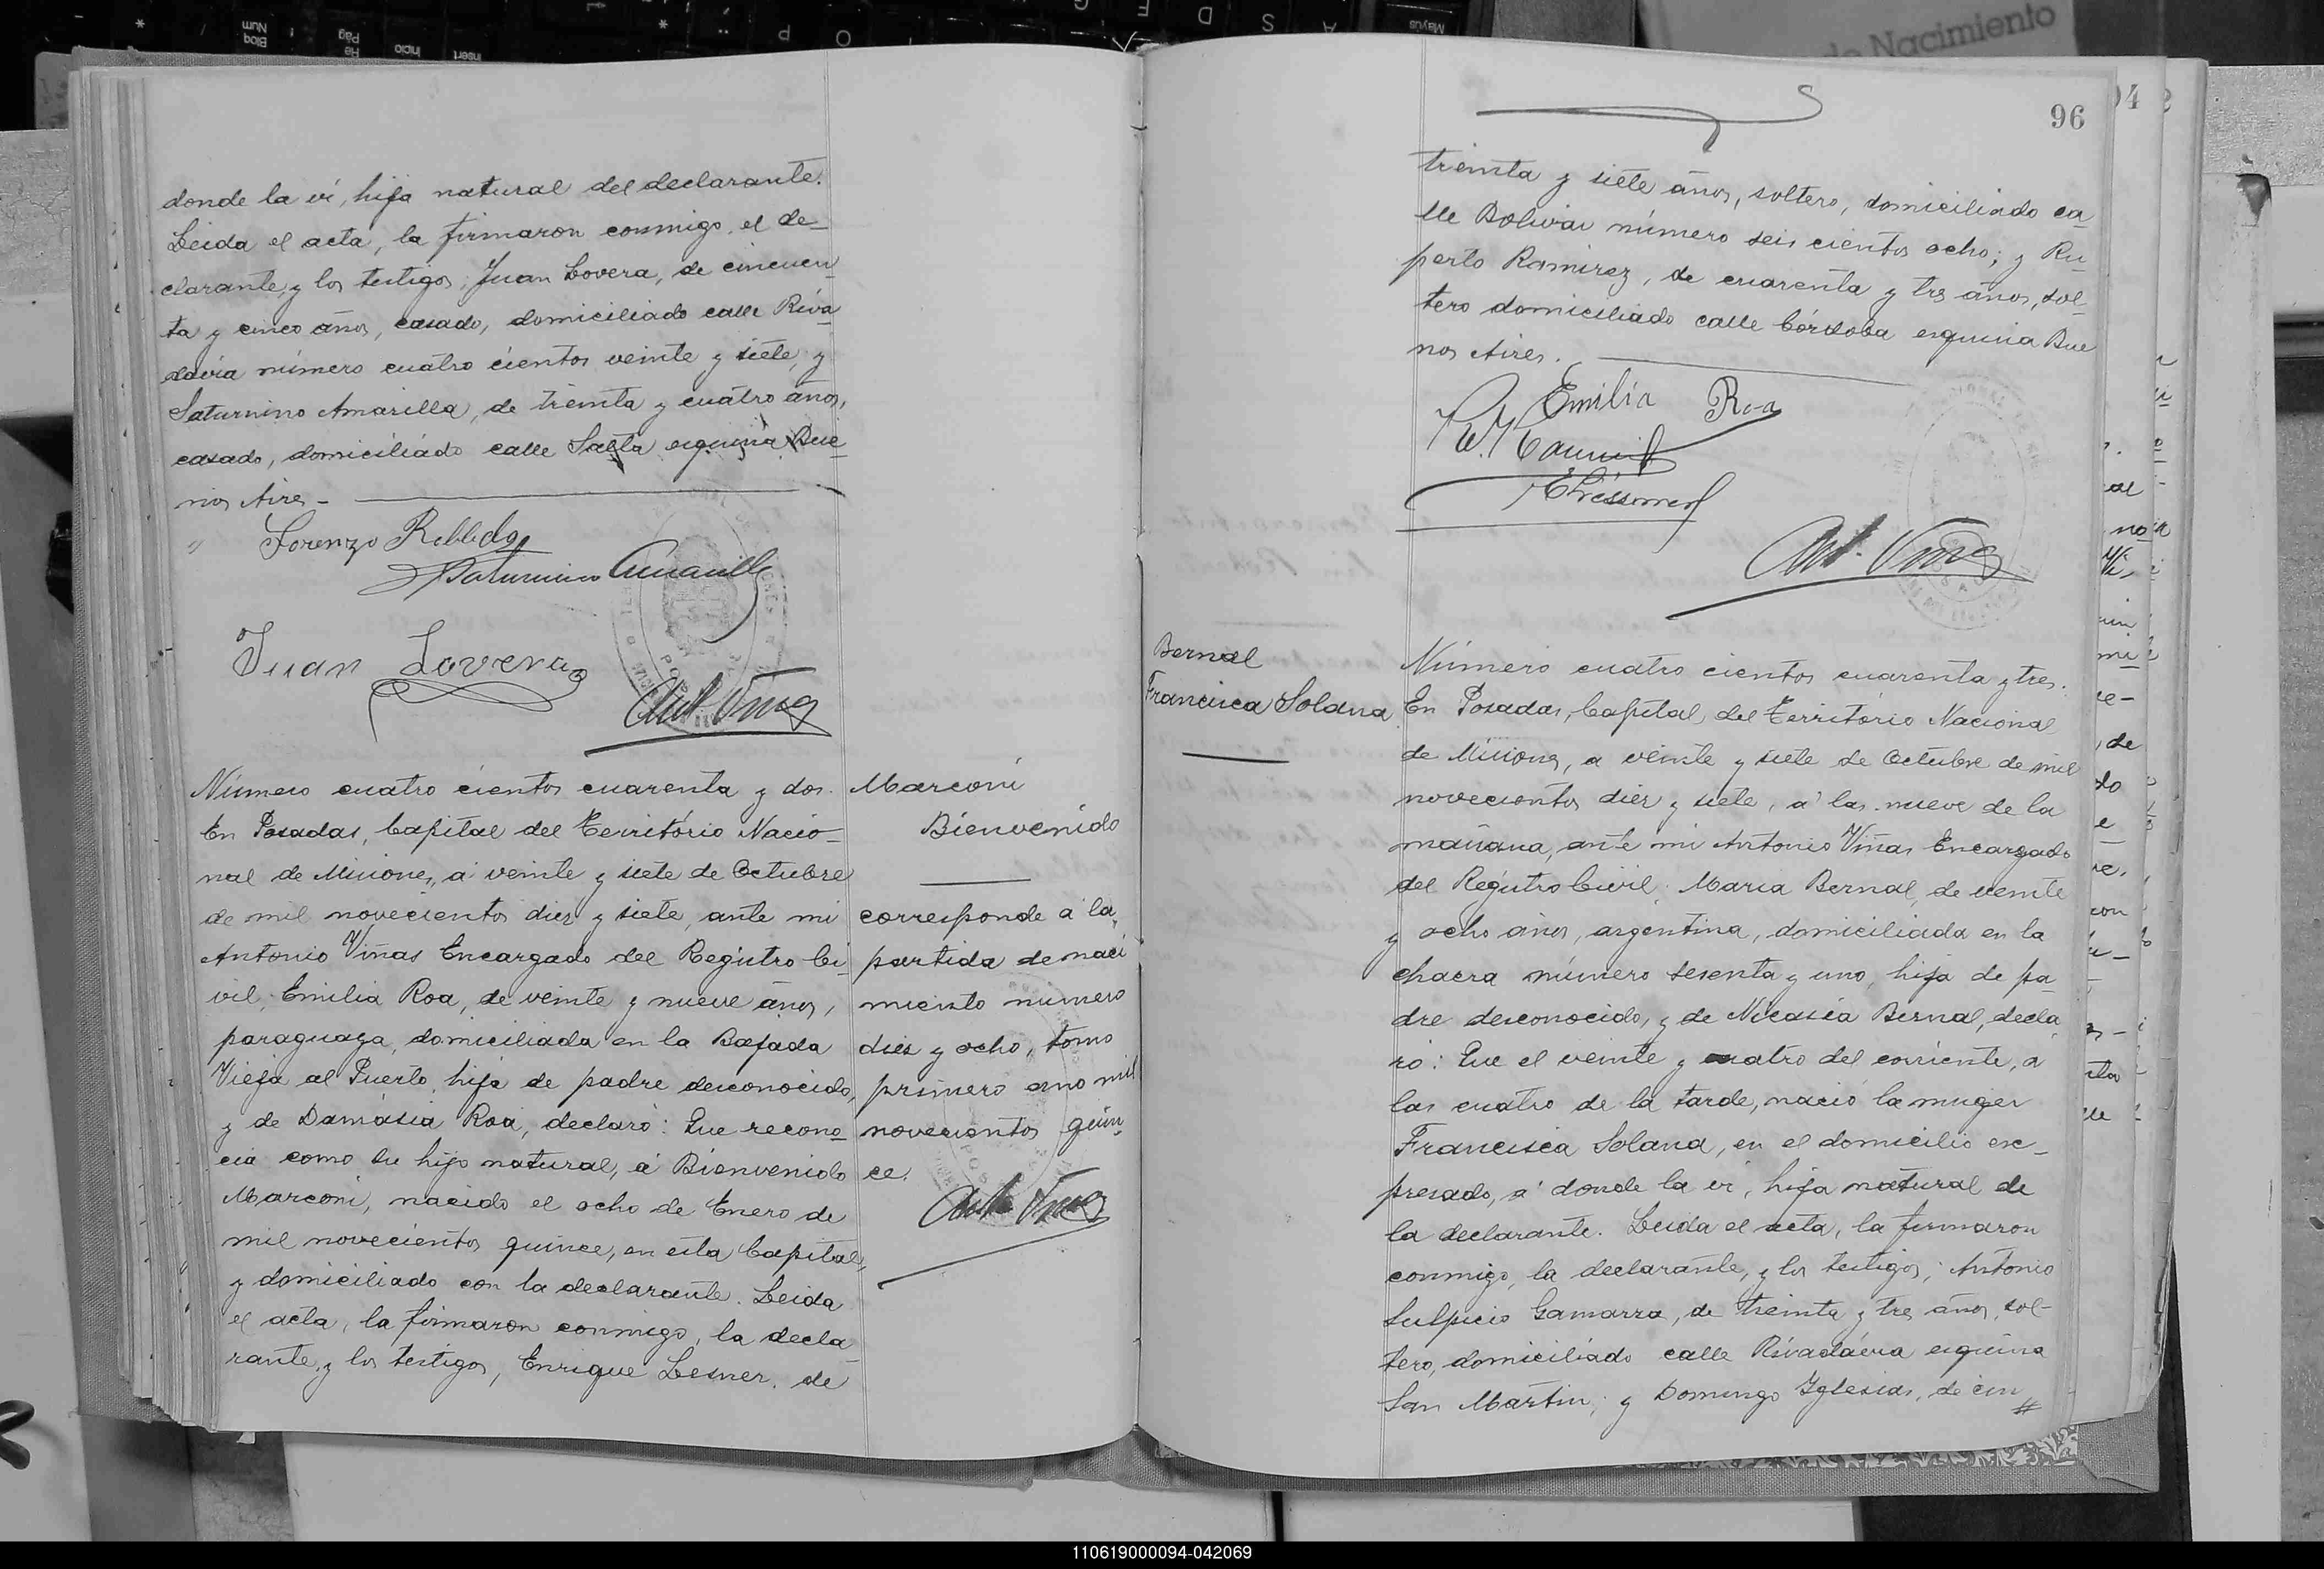 donde la ví, hija natural del declarante.
Leida el acta, la firmaron conmigo, el de_
clarante, y los testigos; Juan Lovera, de cincuen
ta y cinco años, casado, domiciliado calle Riva
davia número cuatro cientos veinte y siete, y
Saturnino Amarilla, de treinta y cuatro años,
casado, domiciliado calle Salta esquina Bue
nos Aires _
Lorenzo Robledo
Saturnino Amarilla
Juan Lovera
Ant. Viñas
Número cuatro cientos cuarenta y dos.
En Posadas, Capital del Território Nacio_
nal de Misiones, á veinte y siete de Octubre
de mil novecientos diez y siete, ante mi
Antonio Viñas Encargado del Registro Ci
vil, Emilia Roa, de veinte y nueve años,
paraguaya, domiciliada en la Bajada
Vieja al Puerto, hija de padre desconocido,
y de Damásia Roa, declaró: Que recono
cia como su hijo natural, á Bienvenido
Marconi, nacido el ocho de Enero de
mil novecientos quince, en esta Capital,
y domiciliado con la declarante. Leida
el acta, la firmaron conmigo, la decla
rante, y los testigos, Enrique Lesner, de
Marconi
Bienvenido
corresponde á la
partida de naci
miento numero
diez y ocho, tomo
primero ano mil
novecientos quin
ce.
Ant. Viñas
96
treinta y siete años, soltero, domiciliado ca
lle Bolivar número seis cientos ocho; y Ru_
perto Ramirez, de cuarenta y tres años, sol_
tero domiciliado calle Córdoba esquina Bue
nos Aires.
Emilia Roa
Ant. Viñas
Bernal
Francisca Solana
Número cuatro cientos cuarenta y tres.
En Posadas, Capital del Território Nacional
de Misiones, a veinte y siete de Octubre de mil
novecientos diez y siete, á las nueve de la
mañana, ante mi Antonio Viñas Encargado
del Registro Civil; Maria Bernal, de veinte
y ocho años, argentina, domiciliada en la
chacra número sesenta y uno, hija de pa_
dre desconocido, y de Nicasia Bernal, decla
ró: Que el veinte y cuatro del corriente, á
las cuatro de la tarde, nació la muger
Francisca Solana, en el domicilio ex_
presado, á donde la ví, hija natural de
la declarante. Leida el acta, la firmaron
conmigo, la declarante, y los testigos; Antonio
Sulpicio Gamarra, de treinta y tres años, sol_
tero, domiciliado calle Rivadávia esquina
San Martin; y Domingo Iglesias, de cin
110619000094-042069